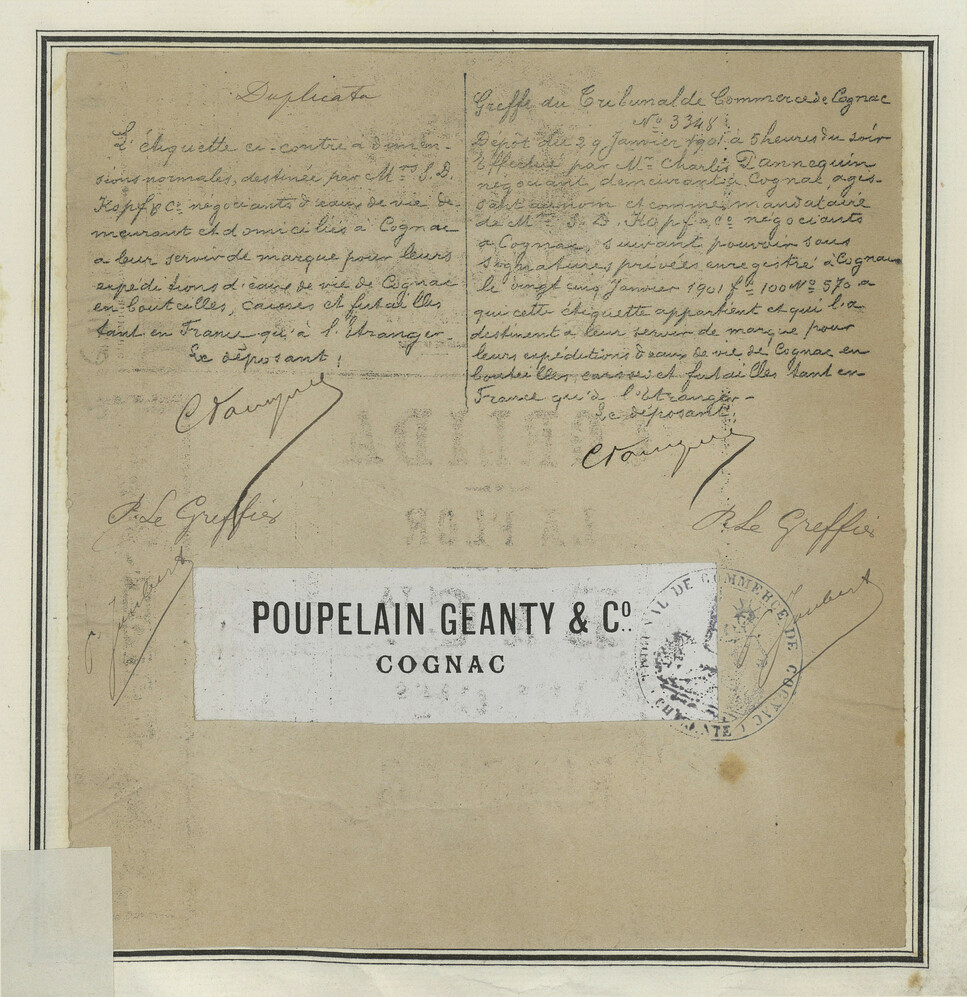 Duplicata
L'étiquette ci-contre à dimen-
sions normales, destinée par Mrs S. D.
Kopf & Ce négociants d'eaux de vie de-
meurant et domiciliés à Cognac
a leur servir de marque pour leurs
expéditions d'eaux de vie de Cognac
en bouteilles, caisses et futailles
tant en France qu'à l'étranger
Le déposant:
P. Le Greffier
Joubert
Greffe du Tribunal de Commerce de Cognac
No 3348
Dépôt du 29 Janvier 1901 à 5 heures du soir
Effectué par Mr Charles Dannequin
négociant, demeurant à Cognac, agis-
sant au nom et comme mandataire
de Mrs S. D. Kopf & Co négociants
à Cognac, suivant pouvoir sous
signatures privées enregistré à Cognac
le vingt cinq Janvier 1901 fo 100 No 570 a
qui cette étiquette appartient et qui l'a
destinent à leur servir de marque pour
leurs expéditions d'eaux de vie de Cognac en
bouteilles, caisses et futailles tant en
France qu'à l'étranger-
Le déposant:
P. Le Greffier
Joubert
POUPELAIN GEANTY & Co.
COGNAC
TRIBUNAL DE COMMERCE DE COGNAC
CHARENTE